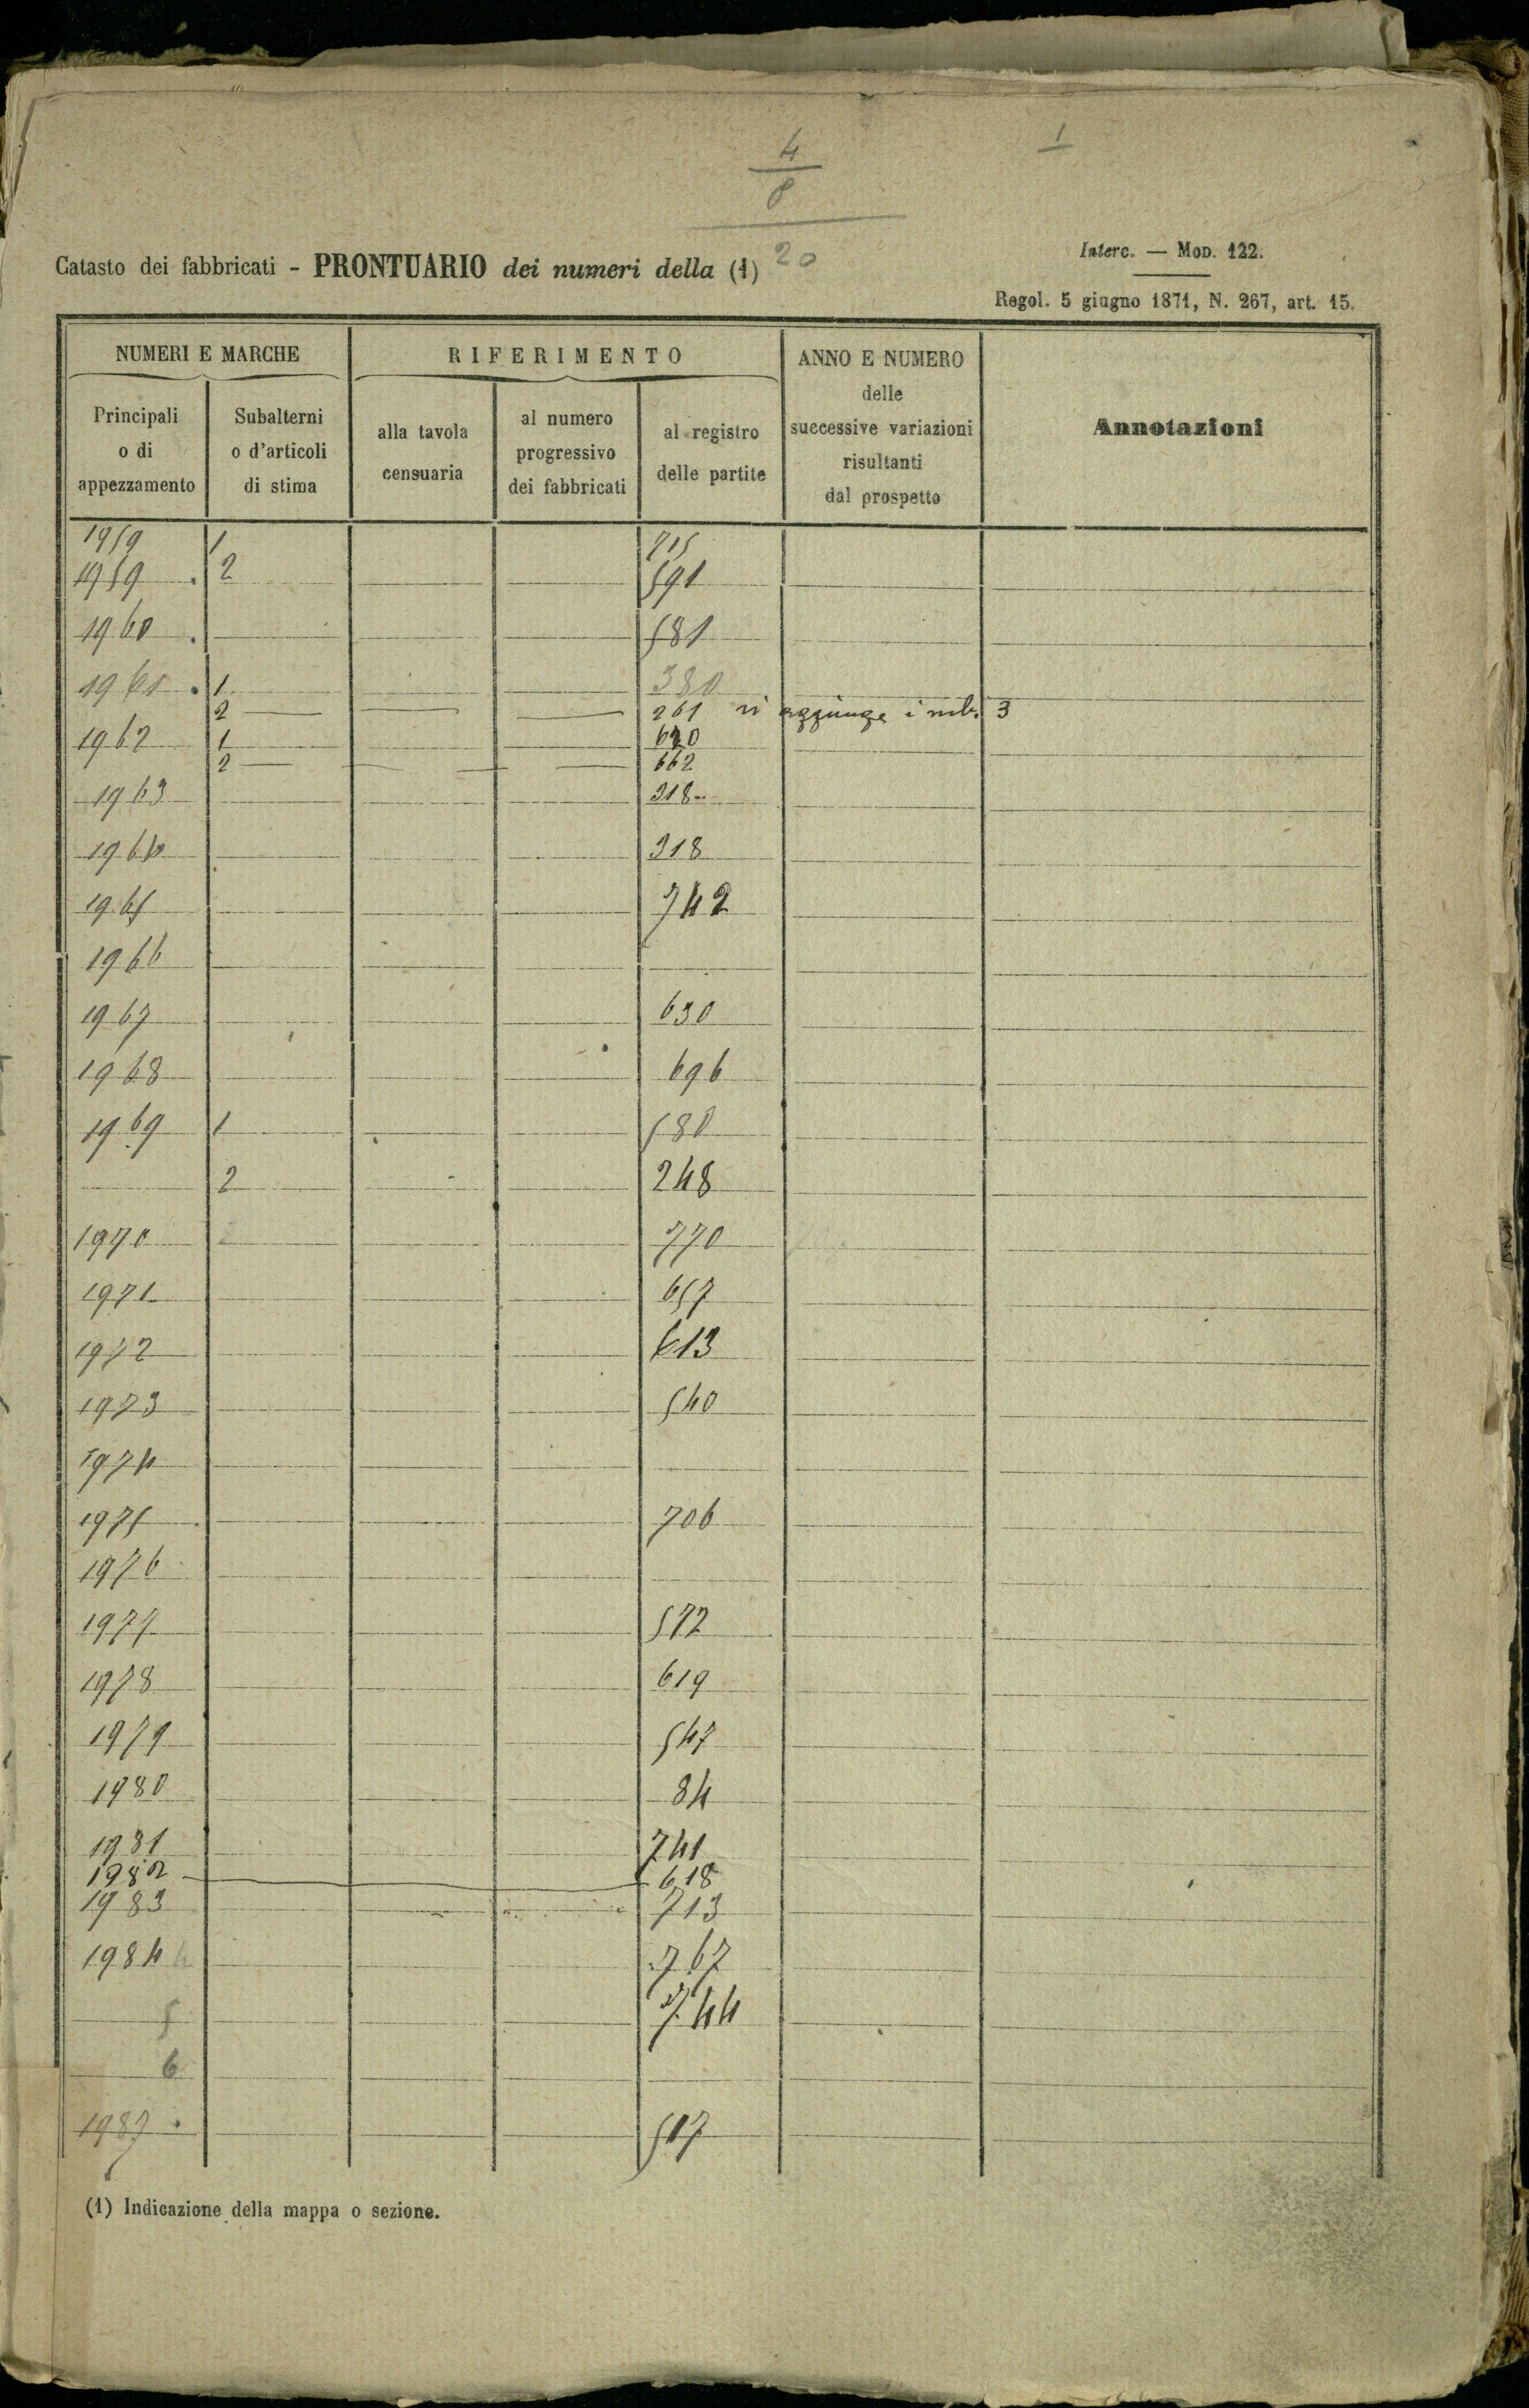 4
1
8
20
Interc. — Mod. 122.
Catasto dei fabbricati - PRONTUARIO dei numeri della (1)
Regol. 5 giugno 1871, N. 267, art. 15.
NUMERI E MARCHE
RIFERIMENTO
ANNO E NUMERO
delle
successive variazioni
risultanti
dal prospetto
Annotazioni
Principali
o di
appezzamento
Subalterni
o d'articoli
di stima
alla tavola
censuaria
al numero
progressivo
dei fabbricati
al registro
delle partite
1959 1 715
1959 . 2 591
1960 . 581
1961 . 1 380
2 261 si aggiunge i 3
1962 1
2 662
1963 318
1964 318
1965 742
1966
1967 630
1968 696
1969 1 580
2 248
1970 770
1971 657
1972 613
1973 540
1974
1975 706
1976
1977 572
1978 619
1979 547
1980 84
1981 741
1982 618
1983 713
1984 4 767
5 744
6
1987 . 517
(1) Indicazione della mappa o sezione.